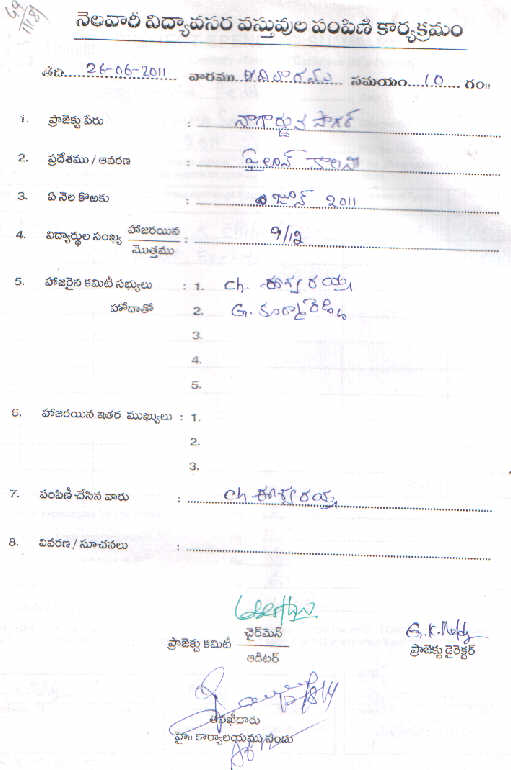 నెలవారీ విద్యావసర వస్తువుల పంపిణి కార్యక్రమం
తేది 26-06-2011 వారము ఆదివారము సమయం 10 గం॥
1. ప్రాజెక్టు పేరు : నాగార్జున సాగర్
2. ప్రదేశము / ఆవరణ : పైలాన్ కాలనీ
3. ఏ నెల కొఱకు : జూన్ 2011
4. విద్యార్థుల సంఖ్య హాజరయిన / మొత్తము : 9/12
5. హాజరైన కమిటీ సభ్యులు : 1. Ch. ఈశ్వరయ్య
హోదాతో 2. G. కూర్మారెడ్డి
3.
4.
5.
6. హాజరయిన ఇతర ముఖ్యులు : 1.
2.
3.
7. పంపిణి చేసిన వారు : Ch ఈశ్వరయ్య
8. వివరణ / సూచనలు :
ప్రాజెక్టు కమిటీ ఛైర్‌మెన్ / ఆడిటర్
G.K.Reddy
ప్రాజెక్టు డైరెక్టర్